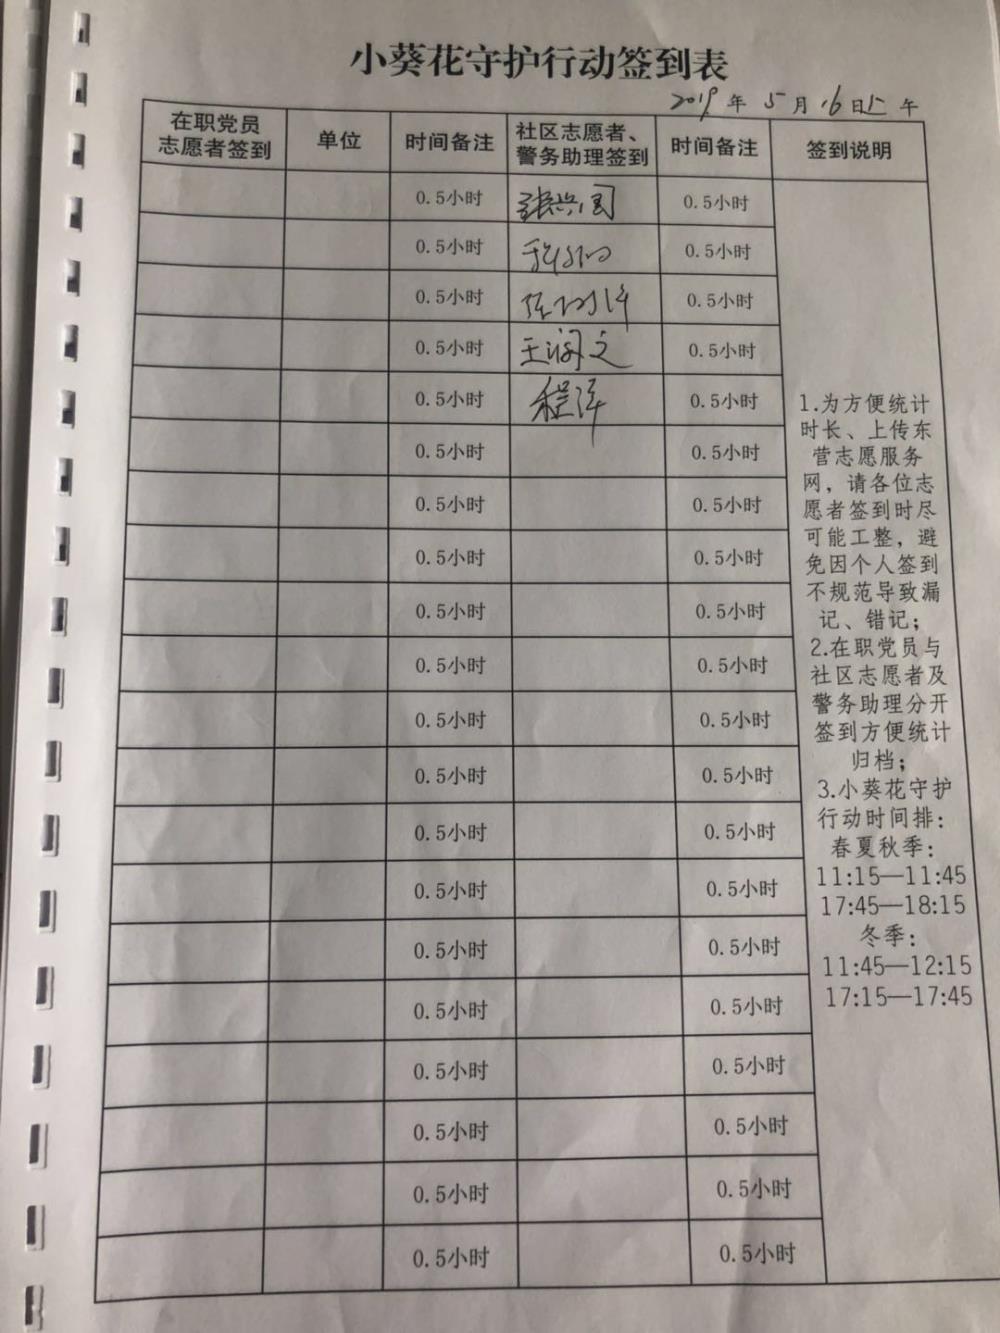 小葵花守护行动签到表
2019年5月16日上午
在职党员
志愿者签到
单位
时间备注
社区志愿者、
警务助理签到
时间备注
签到说明
0.5小时 张兴国 0.5小时
0.5小时 0.5小时
0.5小时 0.5小时
0.5小时 王海文 0.5小时
0.5小时 程泽 0.5小时
0.5小时 0.5小时
0.5小时 0.5小时
0.5小时 0.5小时
0.5小时 0.5小时
0.5小时 0.5小时
0.5小时 0.5小时
0.5小时 0.5小时
0.5小时 0.5小时
0.5小时 0.5小时
0.5小时 0.5小时
0.5小时 0.5小时
0.5小时 0.5小时
0.5小时 0.5小时
0.5小时 0.5小时
0.5小时 0.5小时
1.为方便统计
时长、上传东
营志愿服务
网，请各位志
愿者签到时尽
可能工整，避
免因个人签到
不规范导致漏
记、错记；
2.在职党员与
社区志愿者及
警务助理分开
签到方便统计
归档；
3.小葵花守护
行动时间排：
春夏秋季：
11:15—11:45
17:45—18:15
冬季：
11:45—12:15
17:15—17:45